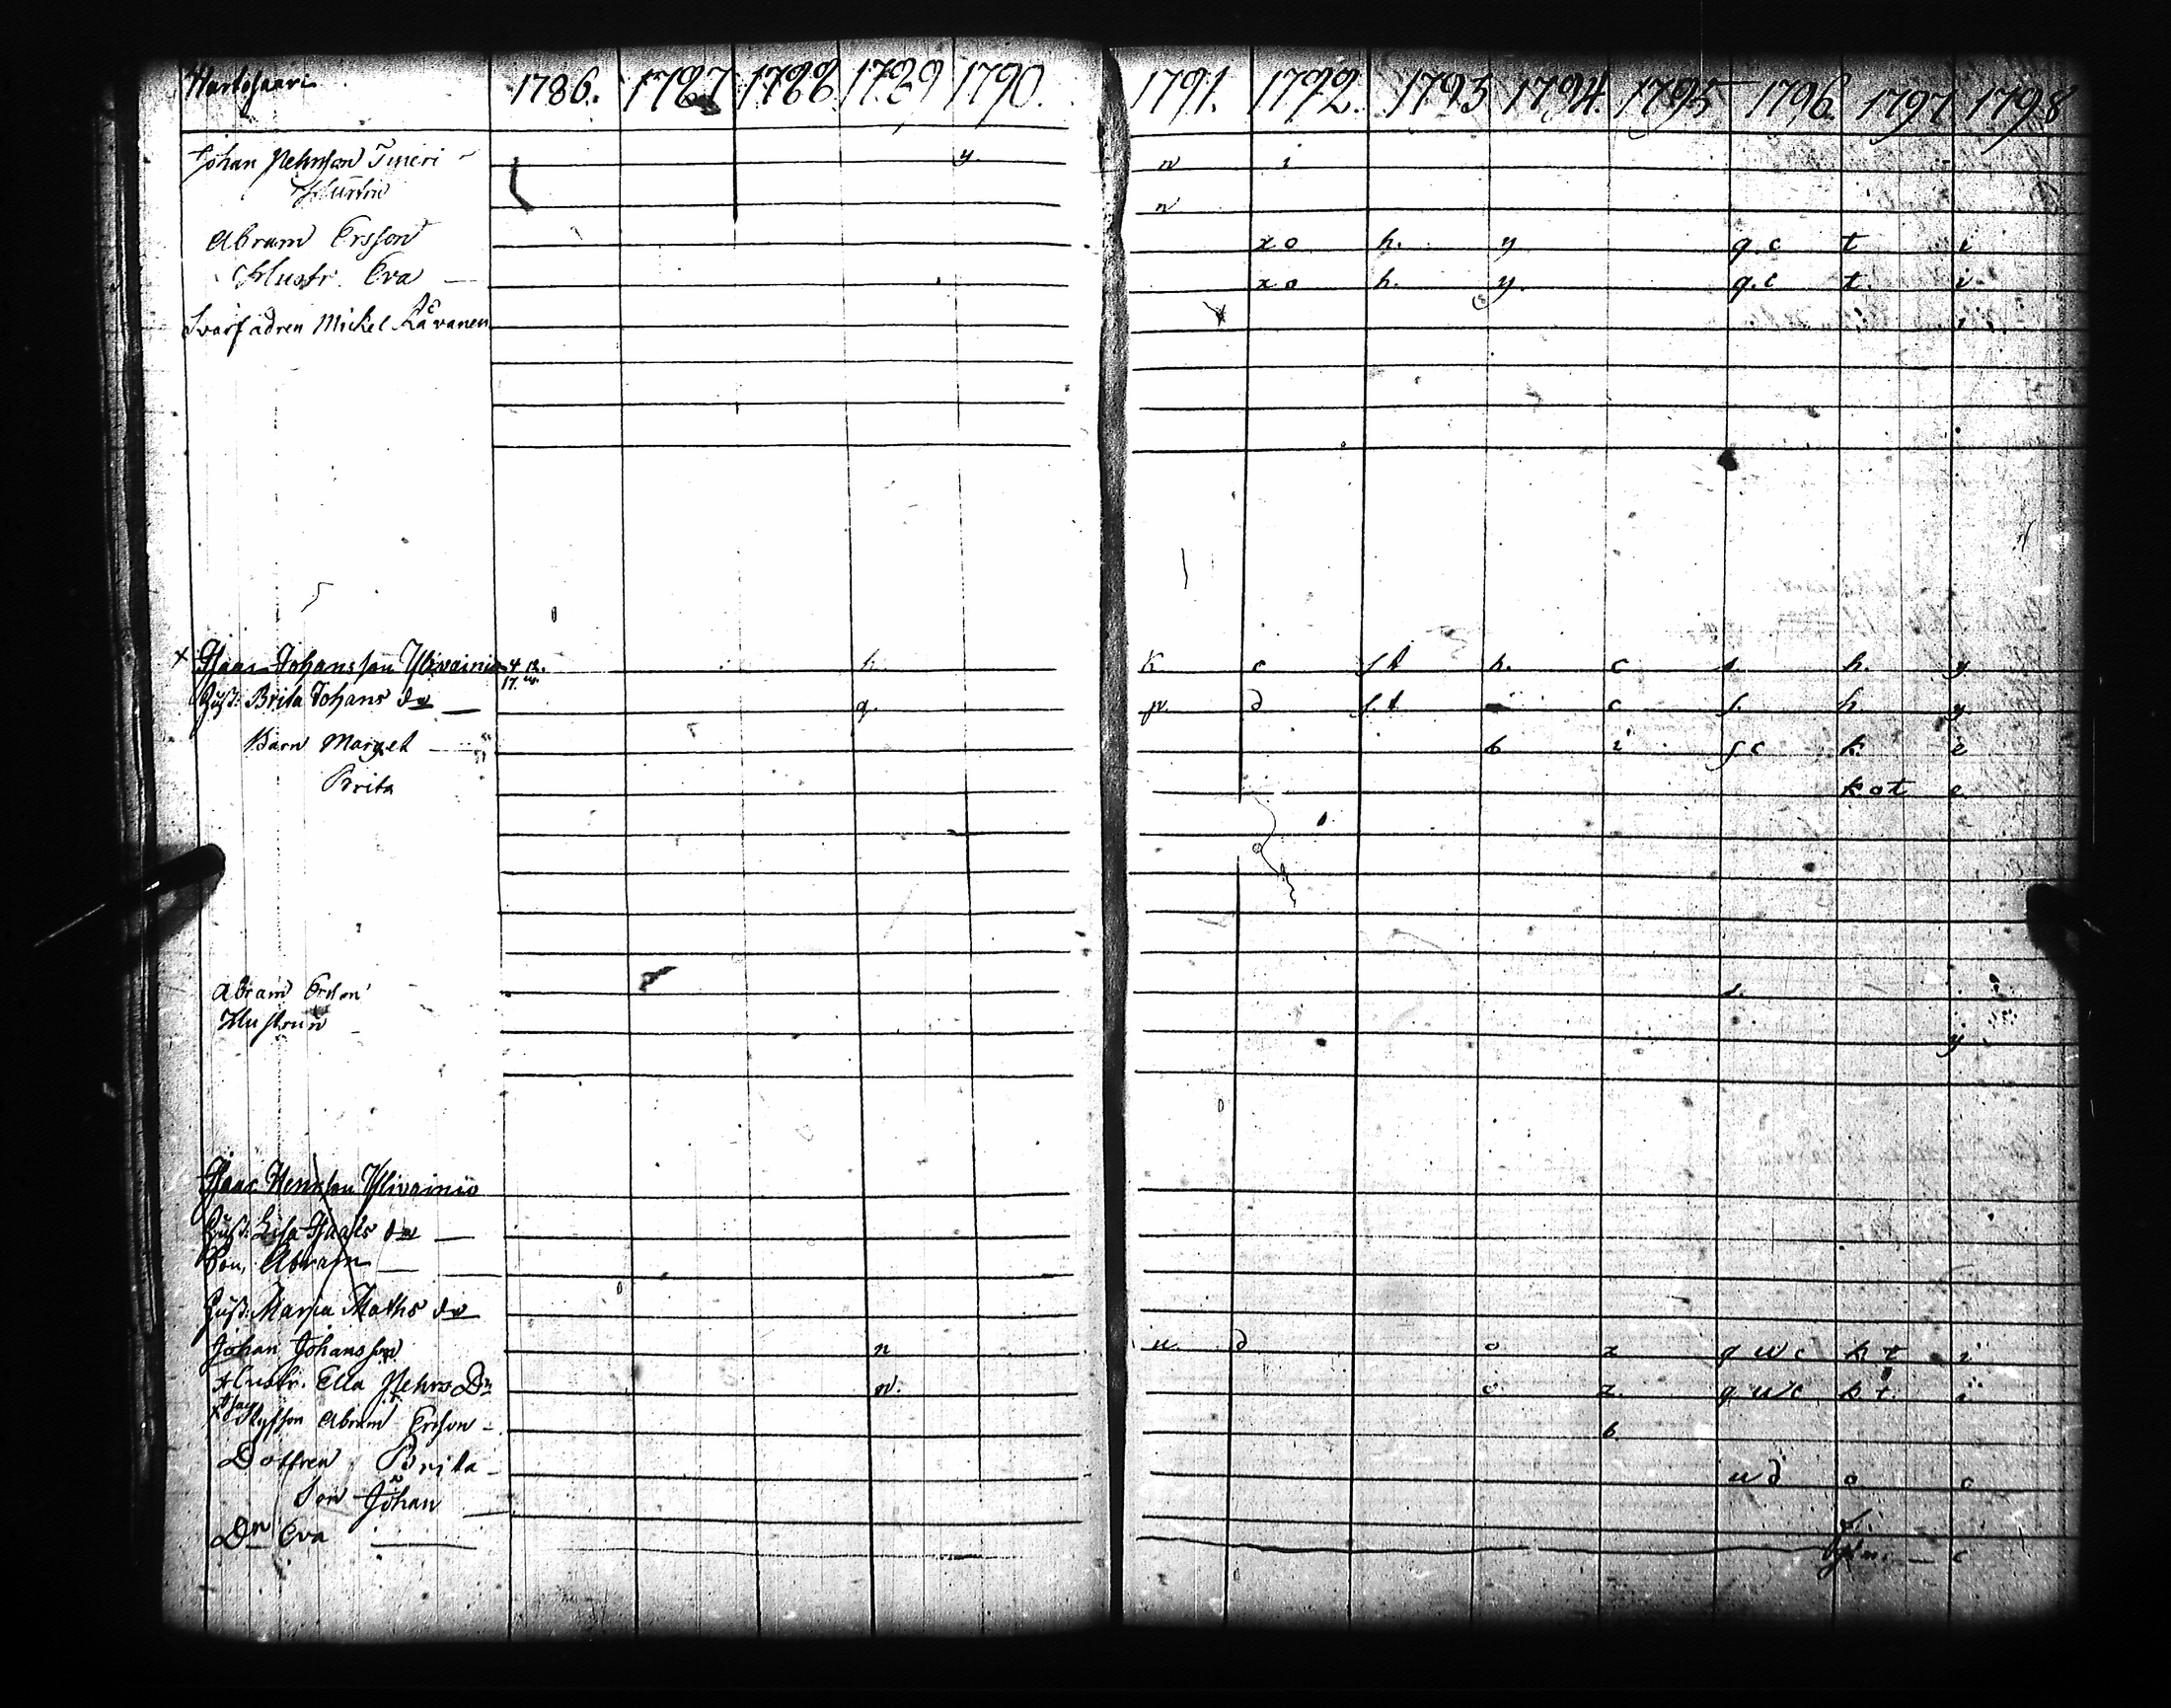 1786. 1787 1788 1789 1790. 1791. 1792. 1793 1794. 1795 1796. 1797 1798
Johan y. n i
n
Abram Ersson x o h. y q. c t i
Hustr. Eva x o h. y. q. c t. i
Svärfadren Mickel i
x Isaac Johansson Ylivainio 4 12. h. K c s t h. c s. h. y
17.
Hust. Brita Johans dr q. p. d s. t c s. h y
Barn Marget b i s c k. e
Brita k o t e
Abram Ersson s.
Hustrun y
Isaac Henrsson Ylivainio
Hust: Lisa Isaaks dr
Son, Abram
Hust: Maria Maths dr
Johan Johansson n u. d o z q w c h t i
Hustr. Ella Pehrs Dr n. o z. q w c h t. i
Abram Ersson b.
Dottren Brita u d o. c
Son Johan
Dn Eva c